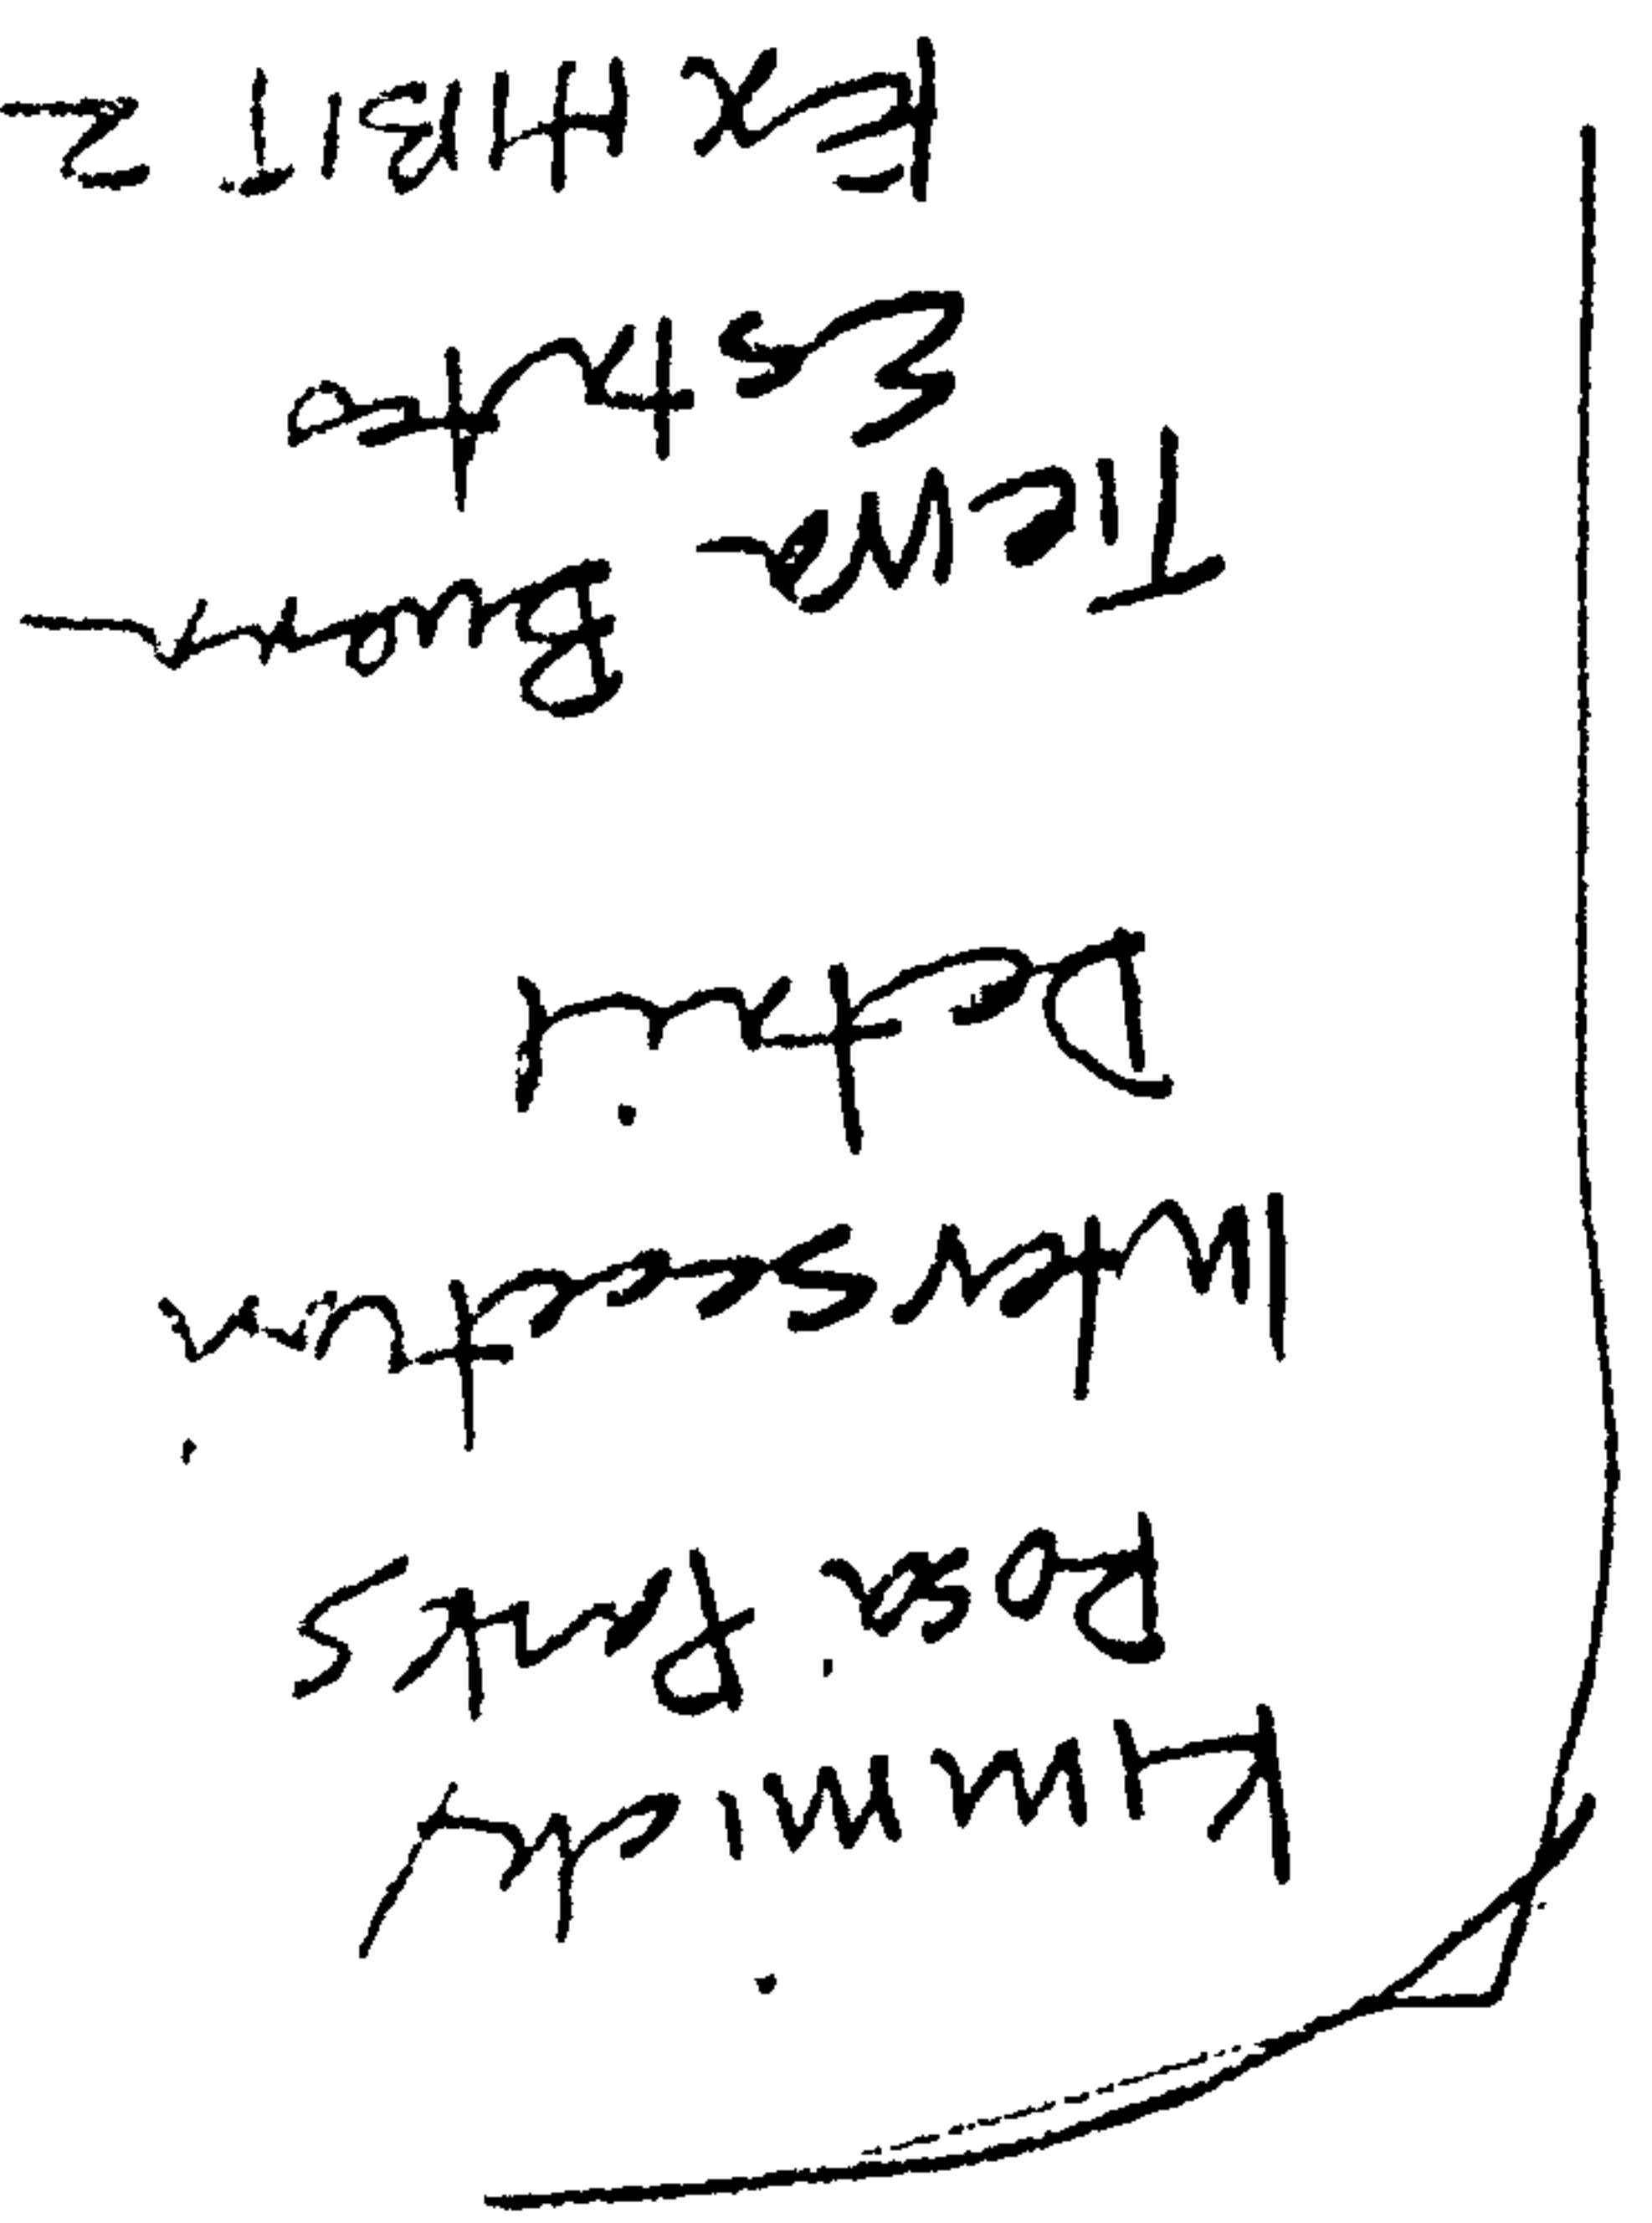 Kimmidy
Rosa Parks
Intersection
Detail
Tierra Buena
Estate
EXHIBIT 2